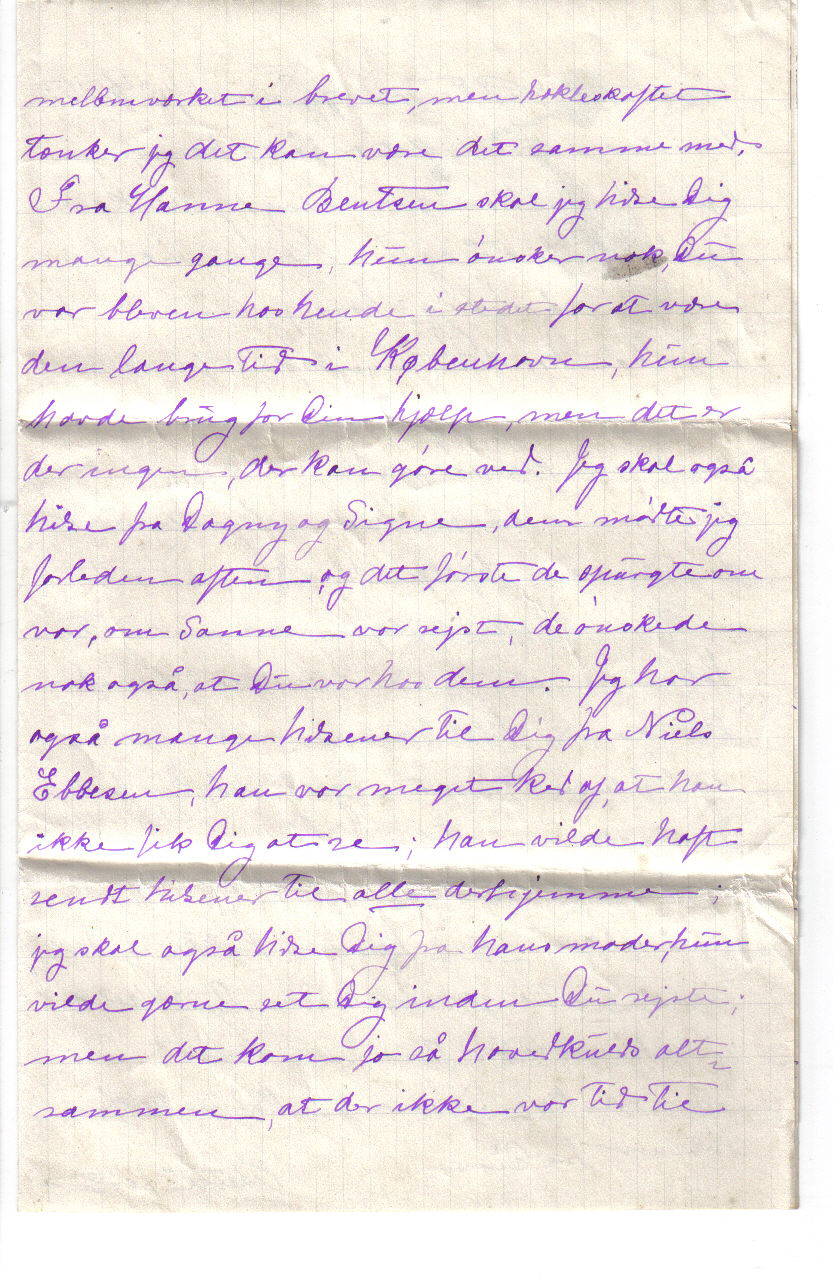 mellemværket i brevet, men hækleskaftet
tænker jeg det kan være det samme med.
Fra Hanne Bentsen skal jeg hilse Dig
mange gange, hun ønsker nok, Du
var bleven hos hende i stedet for at være
den lange Tid i København, hun
havde brug for Din hjælp, men det er
der ingen, der kan göre ved. Jeg skal også
hilse fra Dagny og Signe, dem mødte jeg
forleden aften, og det første de spurgte om
var, om Sanne var rejst, de ønskede
nok også, at Du var hos dem. Jeg har
også mange hilsener til Dig fra Niels
Ebbesen, han var meget ked af, at han
ikke fik Dig at se; han vilde haft
sendt hilsener til alle derhjemme;
jeg skal også hilse Dig fra hans moder, hun
vilde gærne set Dig inden Du rejste;
men det kom jo så hovedkulds alt-
sammen, at der ikke var tid til